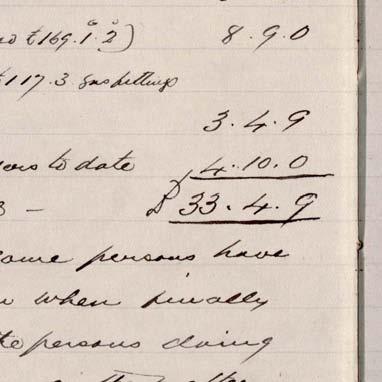 to £169.1.2) 8.9.0
£117.3. gas fittings
3.4.9
to date 4.10.0
3 – £33.4.9
some persons have
when finally
the persons doing